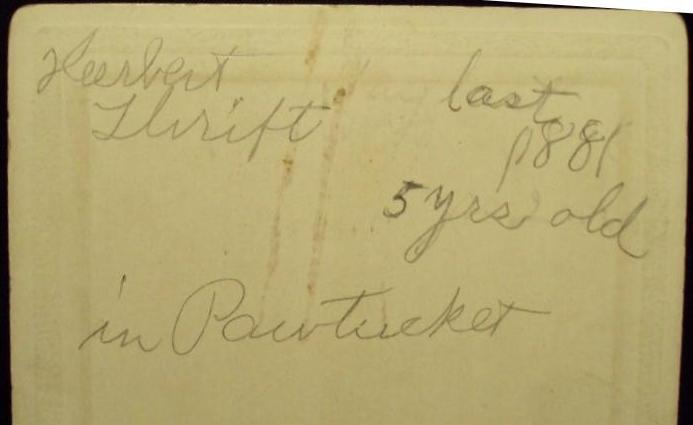 Herbert
Thrift
last
1881
5 yrs old
in Pawtucket